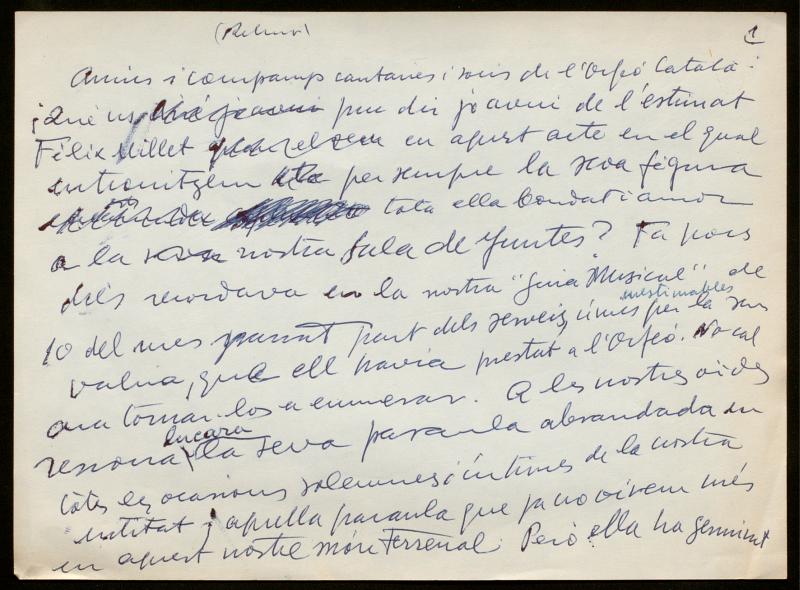 1
Amics i companys cantaires i socis de l'Orfeó Català:
¡Què us puc dir jo avui de l'estimat
Fèlix Millet en aquest acte en el qual
entronitzem per sempre la seva figura
tota ella bondat i amor
a la nostra Sala de Juntes? Fa pocs
dels recordava en la nostra "Guia Musical" de
10 del mes passat part dels serveis inestimables per la seva
vàlua, que ell havia prestat a l'Orfeó. No cal
ara tornar-los a enumerar. A les nostres oides
ressona encara la seva paraula abrandada en
totes les ocasions solemnes i íntimes de la nostra
entitat; aquella paraula que ja no oirem més
en aquest nostre món terrenal. Però ella ha germinat